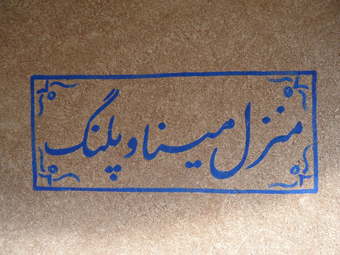 منزل مینا و پلنگ